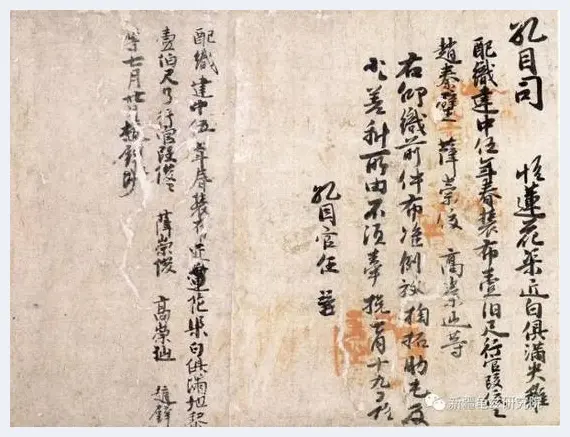 孔目司　帖蓮花渠匠白俱滿失雞
配織建中伍年春裝布壹伯尺行官段俊俊
趙秦璧　薛崇俊　高崇迪等
右仰織前件布准例放掏拓助屯及
小小差科所由不須牽挽七月十九日帖
孔目官任
配織建中伍年春裝布匠蓮花渠白俱滿地黎
壹伯尺了行官段俊俊　薛崇俊　高崇迪　趙
等七月廿日趙　抄
新疆龟兹研究院